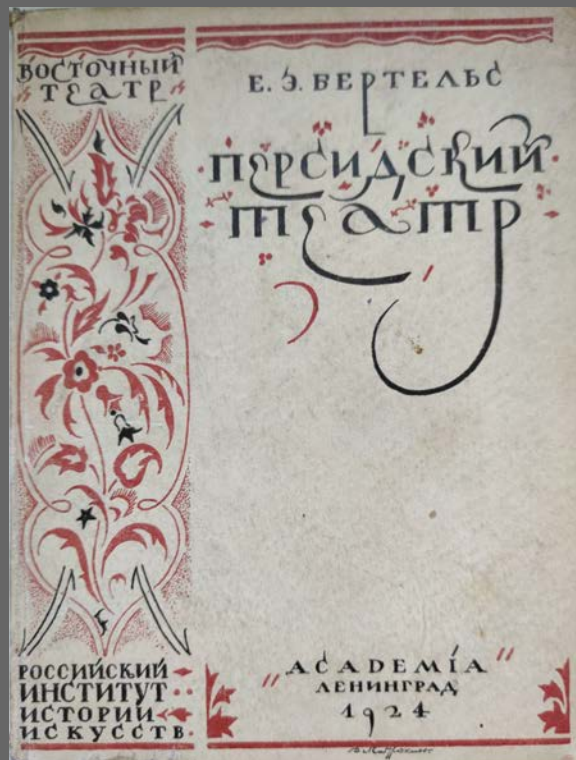 ВОСТОЧНЫЙ
ТЕАТР
Е. Э. БЕРТЕЛЬС
ПЕРСИДСКИЙ
ТЕАТР
РОССИЙСКИЙ
ИНСТИТУТ
ИСТОРИИ
ИСКУССТВ.
"ACADEMIA"
ЛЕНИНГРАД
1924